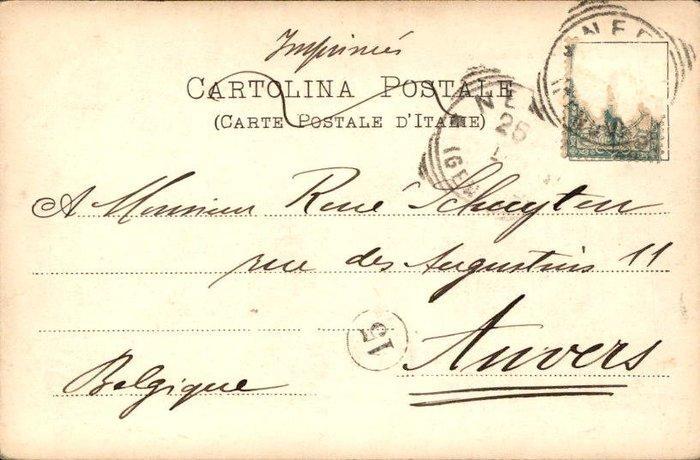 Imprimés
CARTOLINA POSTALE
(CARTE POSTALE D'ITALIE)
A Monsieur René Schuyten
rue des Augustins 11
15
Anvers
Belgique